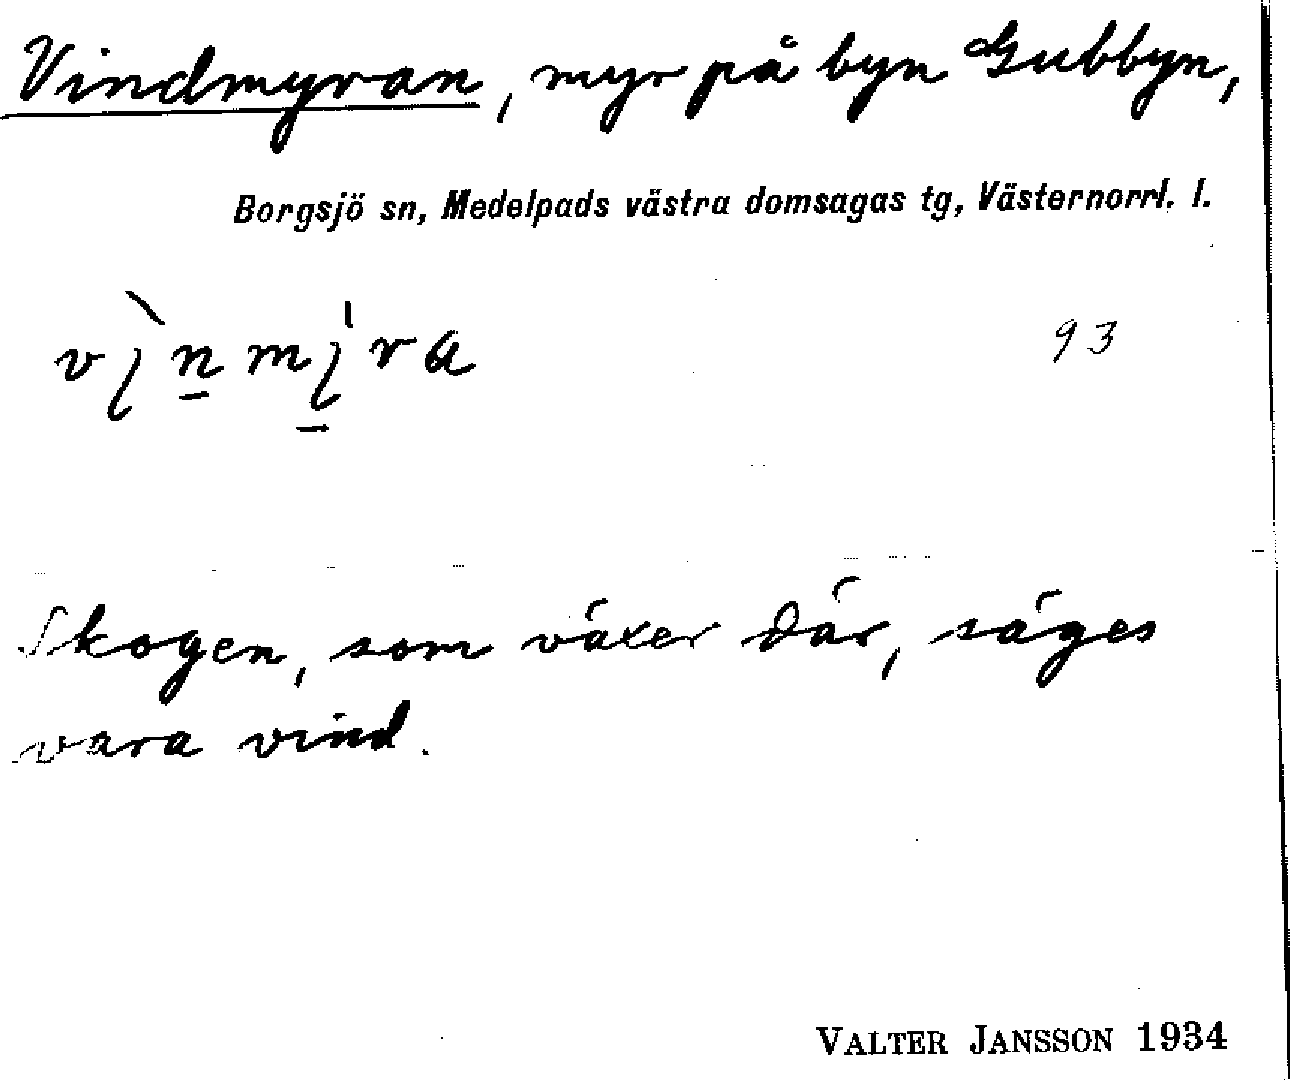 Vindmyran, myr på byn Gubbyn,
Borgsjö sn, Medelpads västra domsagas tg, Västernorrl. l.
93
Skogen, som växer där, säges
vara vind.
VALTER JANSSON 1934